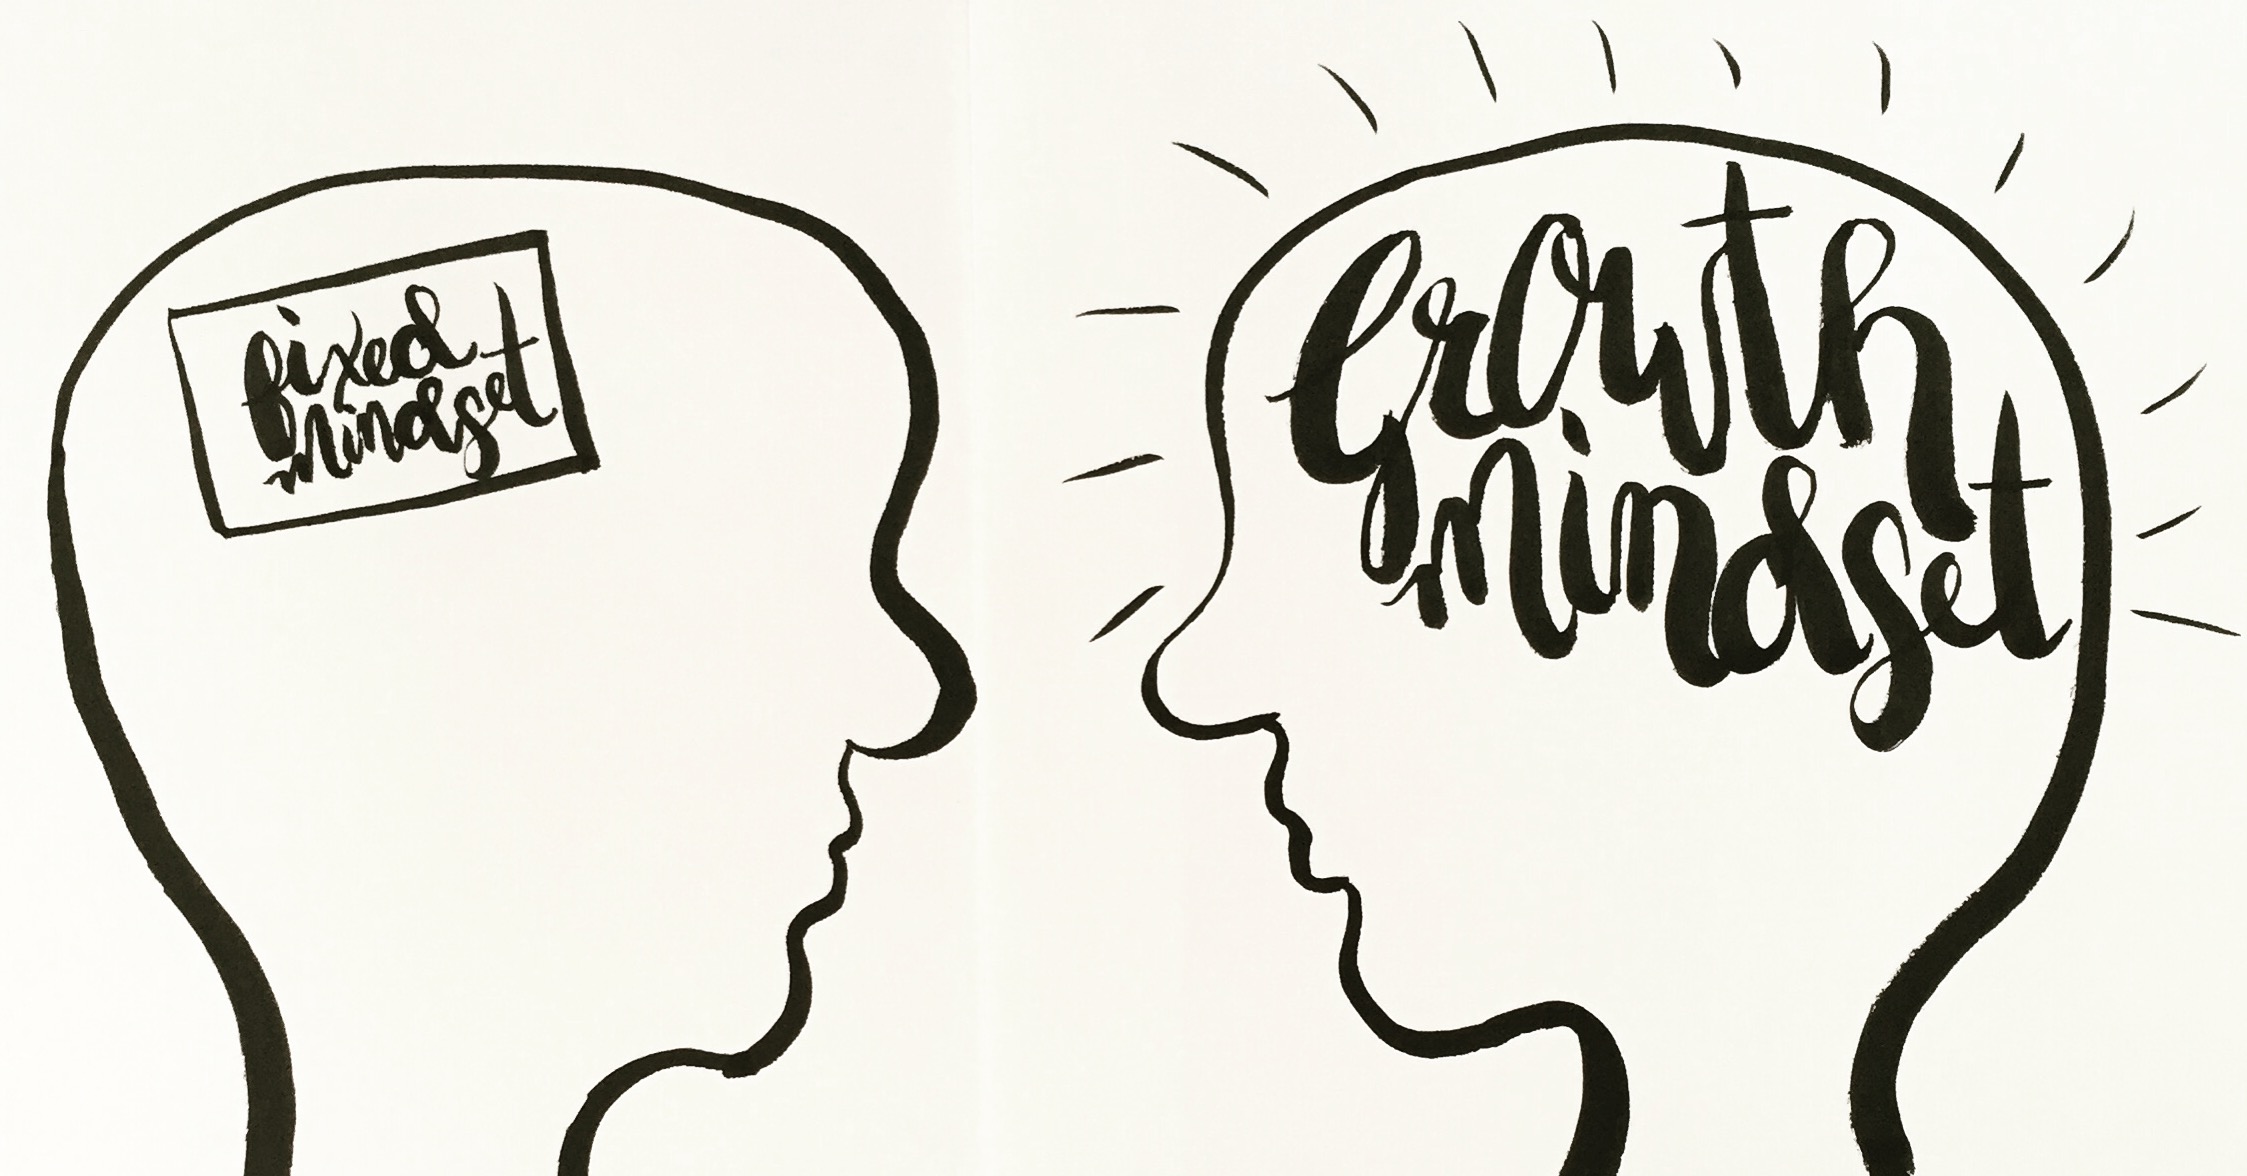 fixed
mindset
Growth
mindset